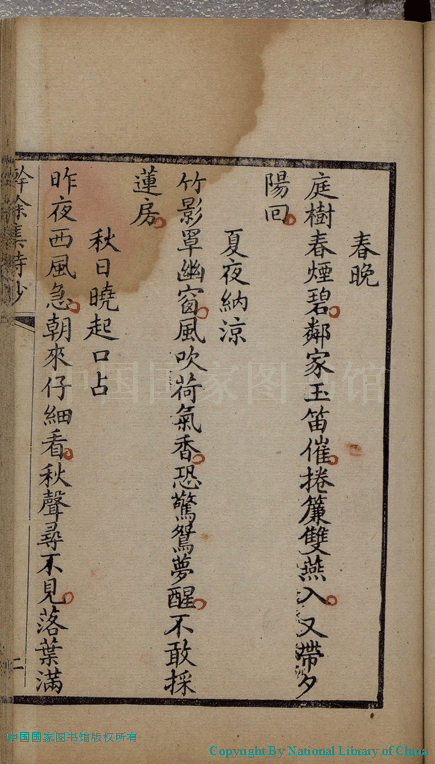 春晚
庭樹春煙碧鄰家玉笛催捲簾雙燕入又帶夕
陽回
夏夜納涼
竹影罩幽窗風吹荷氣香恐驚鴛夢醒不敢採
蓮房
秋日曉起口占
昨夜西風急朝來仔細看秋聲尋不見落葉滿
餘集詩鈔
二
中国国家图书馆
中国国家图书馆版权所有
Copyright By National Library of China